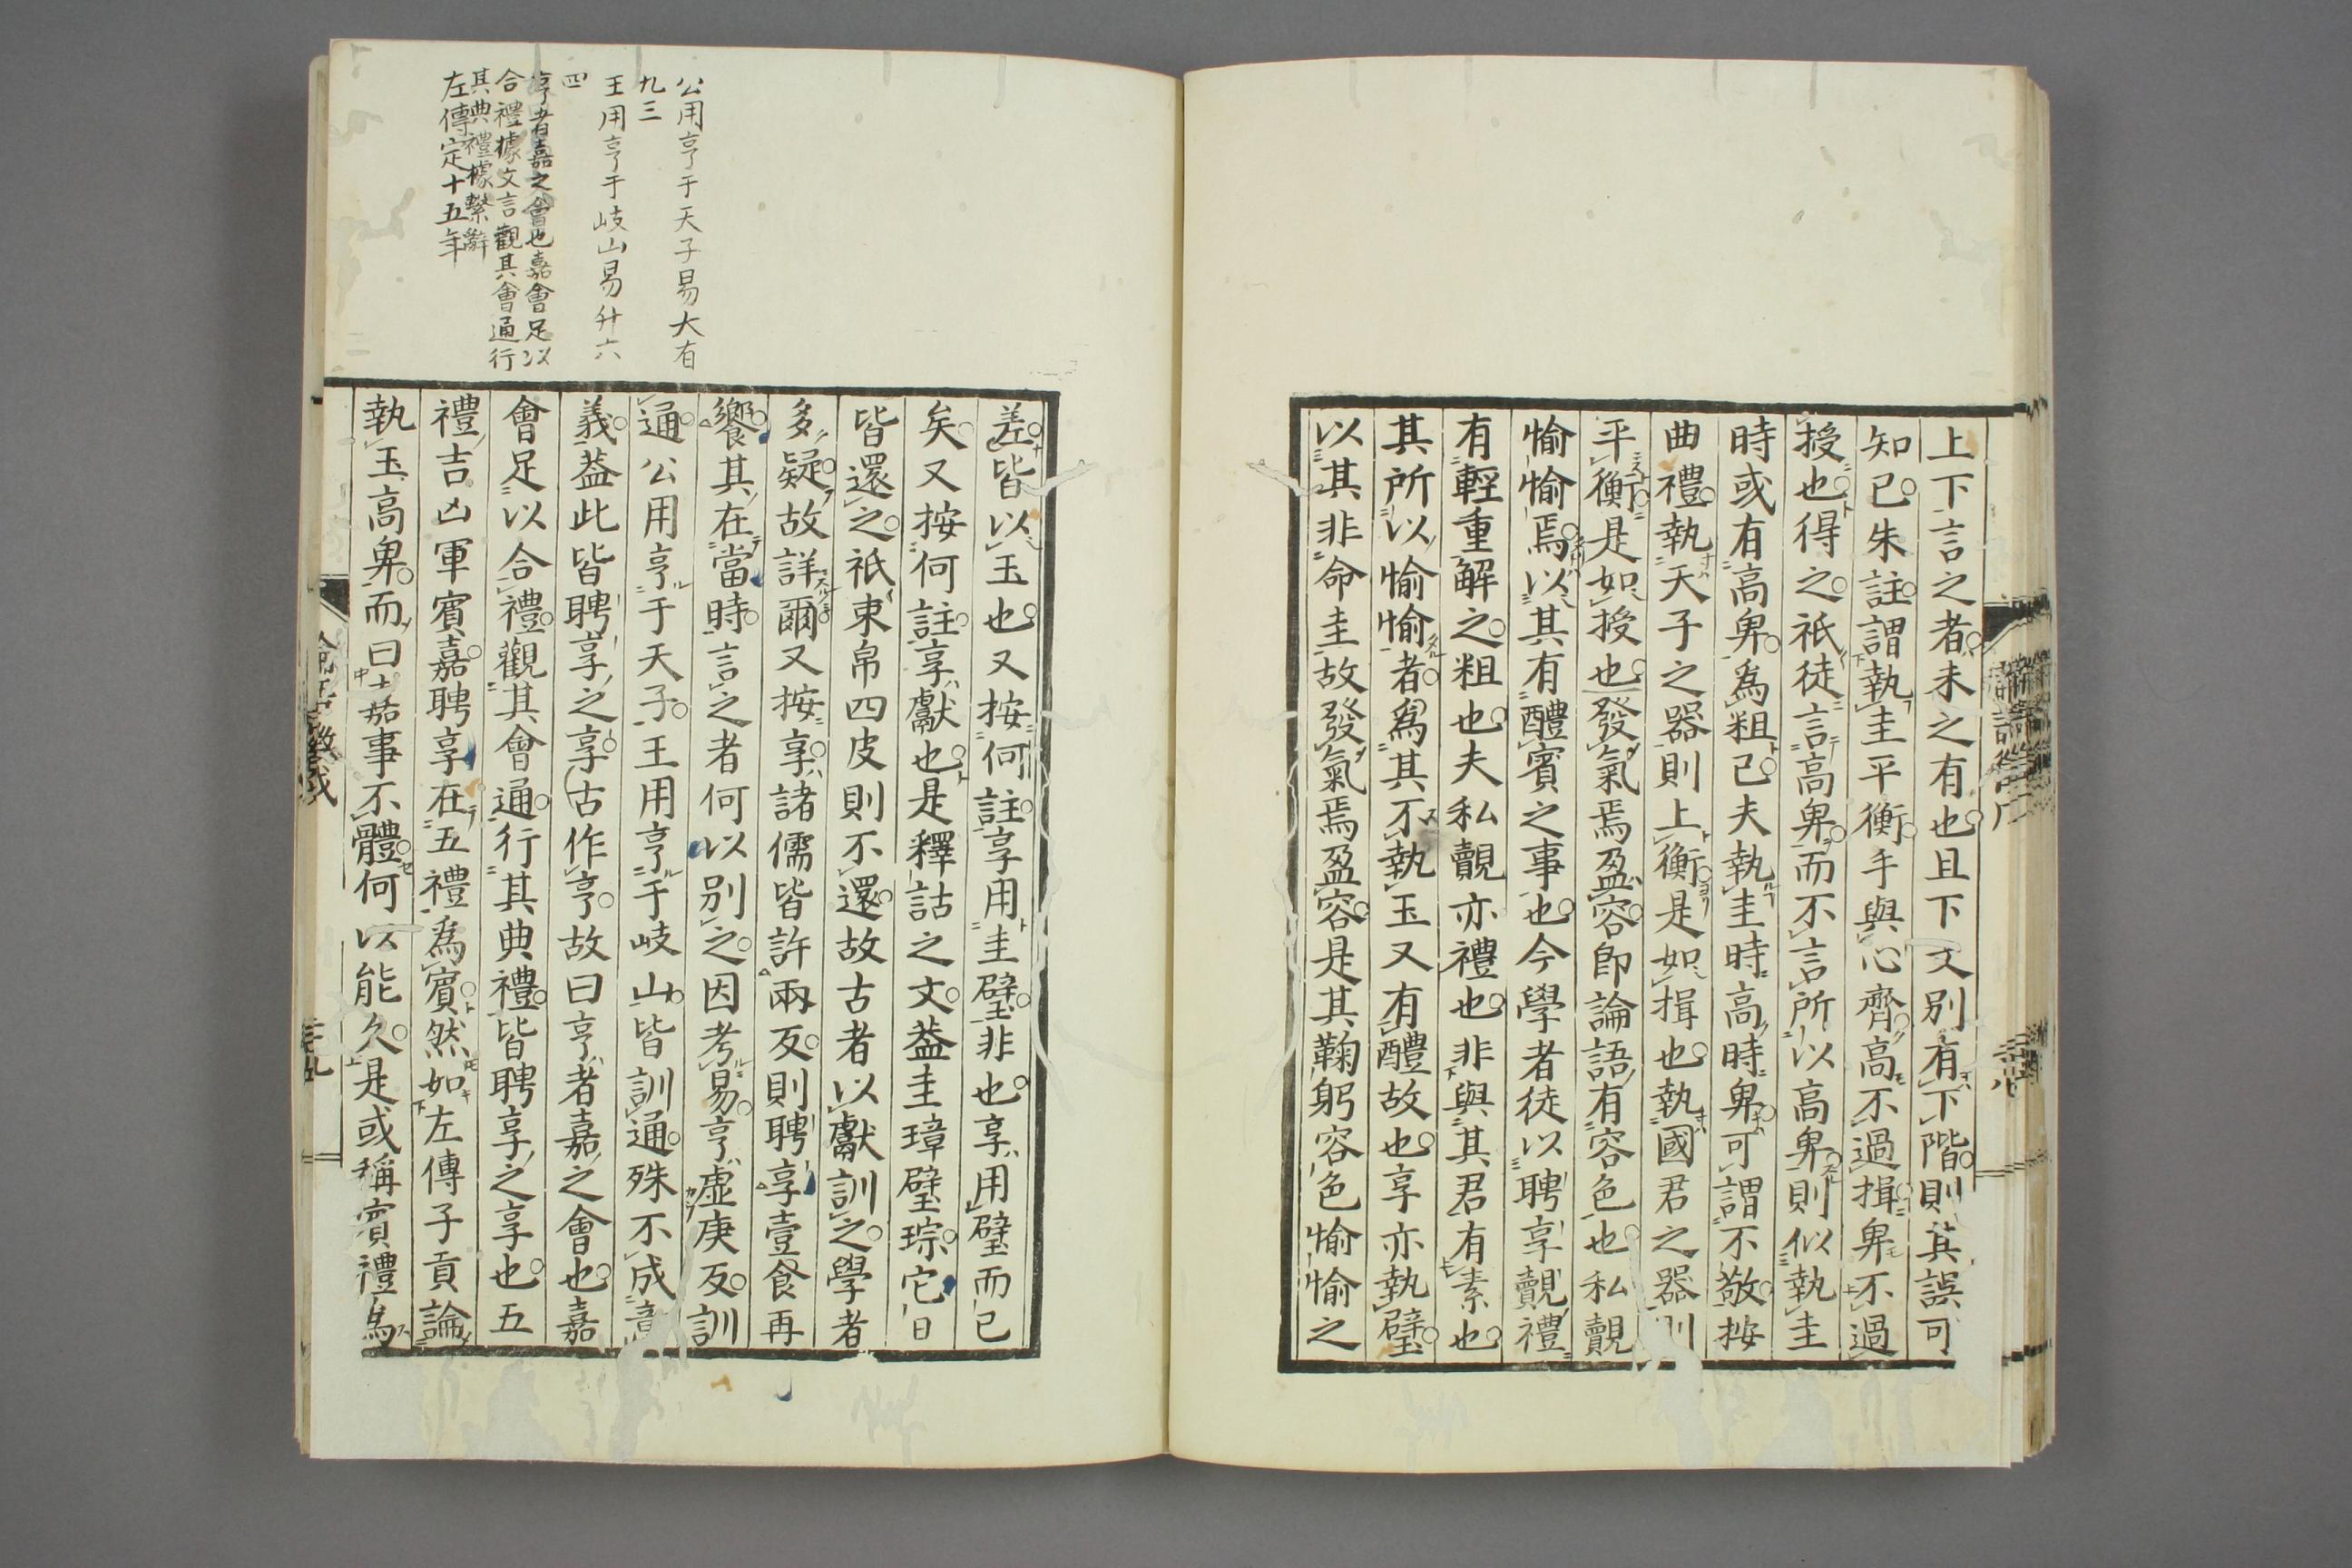 上下言之者未之有也且下文別有下階則其誤可
知已朱註謂執圭平衡手與心齊高不過揖卑不過
授也得之祇徒言高卑而不言所以高卑則似執圭
時或有高卑爲粗已夫執圭時高時卑可謂不敬按
曲禮執天子之器則上衡是如揖也執國君之器則
平衡是如授也發氣焉盈容卽論語有容色也私覿
愉愉焉以其有醴賓之事也今學者徒以聘享覿禮
有輕重解之粗也夫私覿亦禮也非與其君有素也
其所以愉愉者爲其不執玉又有醴故也享亦執璧
以其非命圭故發氣焉盈容是其鞠躬容色愉愉之
三十八
公用亨于天子易大有
九三
王用亨于岐山易升六
四
亨者嘉之會也嘉會足以
合禮據文言觀其會通行
其典禮據繫辭
左傳定十五年
差皆以玉也又按何註享用圭璧非也享用璧而已
矣又按何註享獻也是釋詁之文蓋圭璋璧琮它日
皆還之祇束帛四皮則不還故古者以獻訓之學者
多疑故詳爾又按享諸儒皆許兩反則聘享壹食再
饗其在當時言之者何以別之因考易亨虛庚反訓
通公用亨于天子王用亨于岐山皆訓通殊不成
義蓋此皆聘享之享古作亨故曰亨者嘉之會也嘉
會足以合禮觀其會通行其典禮皆聘享之享也五
禮吉凶軍賓嘉聘享在五禮爲賓然如左傳子貢論
執玉高卑而曰嘉事不體何以能久是或稱賓禮爲
三十九